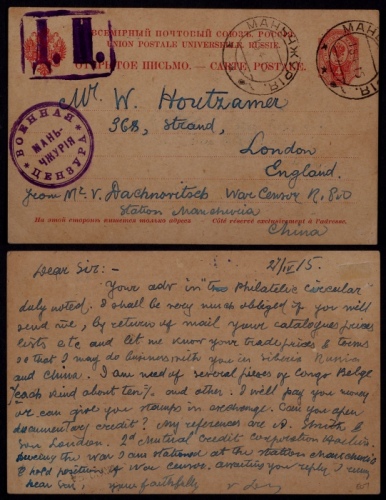 ВСЕМІРНЫЙ ПОЧТОВЫЙ СОЮЗЪ. РОССІЯ.
UNION POSTALE UNIVERSELLE. RUSSIE.
ОТКРЫТОЕ ПИСЬМО. — CARTE POSTALE.
МАНЬЧЖУРІЯ.
МАНЬЧЖУРІЯ.
ВОЕННАЯ
МАНЬ-
ЧЖУРІЯ
ЦЕНЗУРА
Mr. W. Houtzamer
368, Strand,
London
England.
from Mr. V. Dachnovitsch War Censor R.
Station Manchuria
China
На этой сторонѣ пишется только адресъ. Côté réservé exclusivement à l'adresse.
Dear Sir:- 2/IV/5.
Your adv in "the Philatelic circular
duly noted. I shall be very much obliged if you will
send me, by return of mail your catalogues prices
lists etc and let me know your trade prices & terms
so that I may do business with you in Siberia Russia
and China. I am need of several pieces of Congo Belge
each kind about ten% and other. I will pay you money
or can give you stamps in exchange. Can you open
documentary credit? My references are A. Smith &
son London. 2d Mutual Credit Corporation
During the war I am stationed at the station Manchuria
& hold position of War censor. awaiting you reply I am,
Dear Sir, yours faithfully